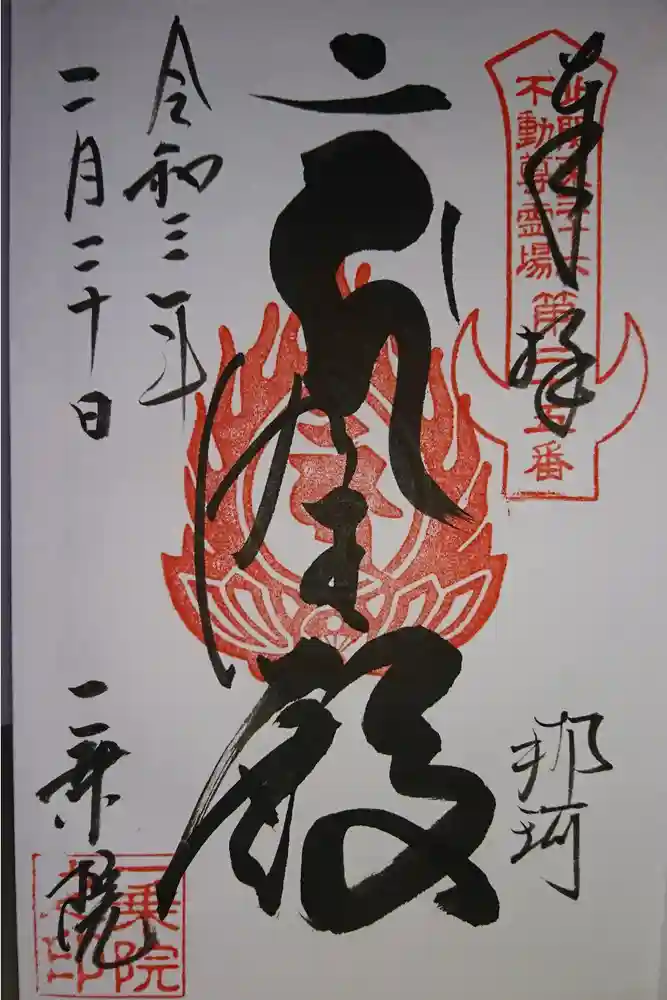 奉拝
北関東三十六
不動尊霊場
番
那珂
殿
令和三年
二月二十日
一乗院
一乗院
之印